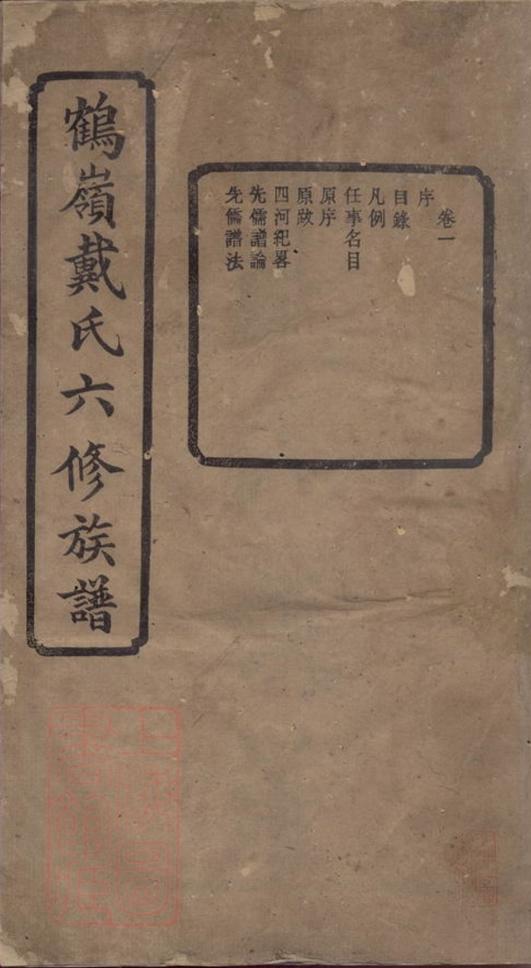 卷一
序
目錄
凡例
任事名目
原序
原跋
四河紀畧
先儒譜論
先儒譜法
鶴嶺戴氏六修族譜